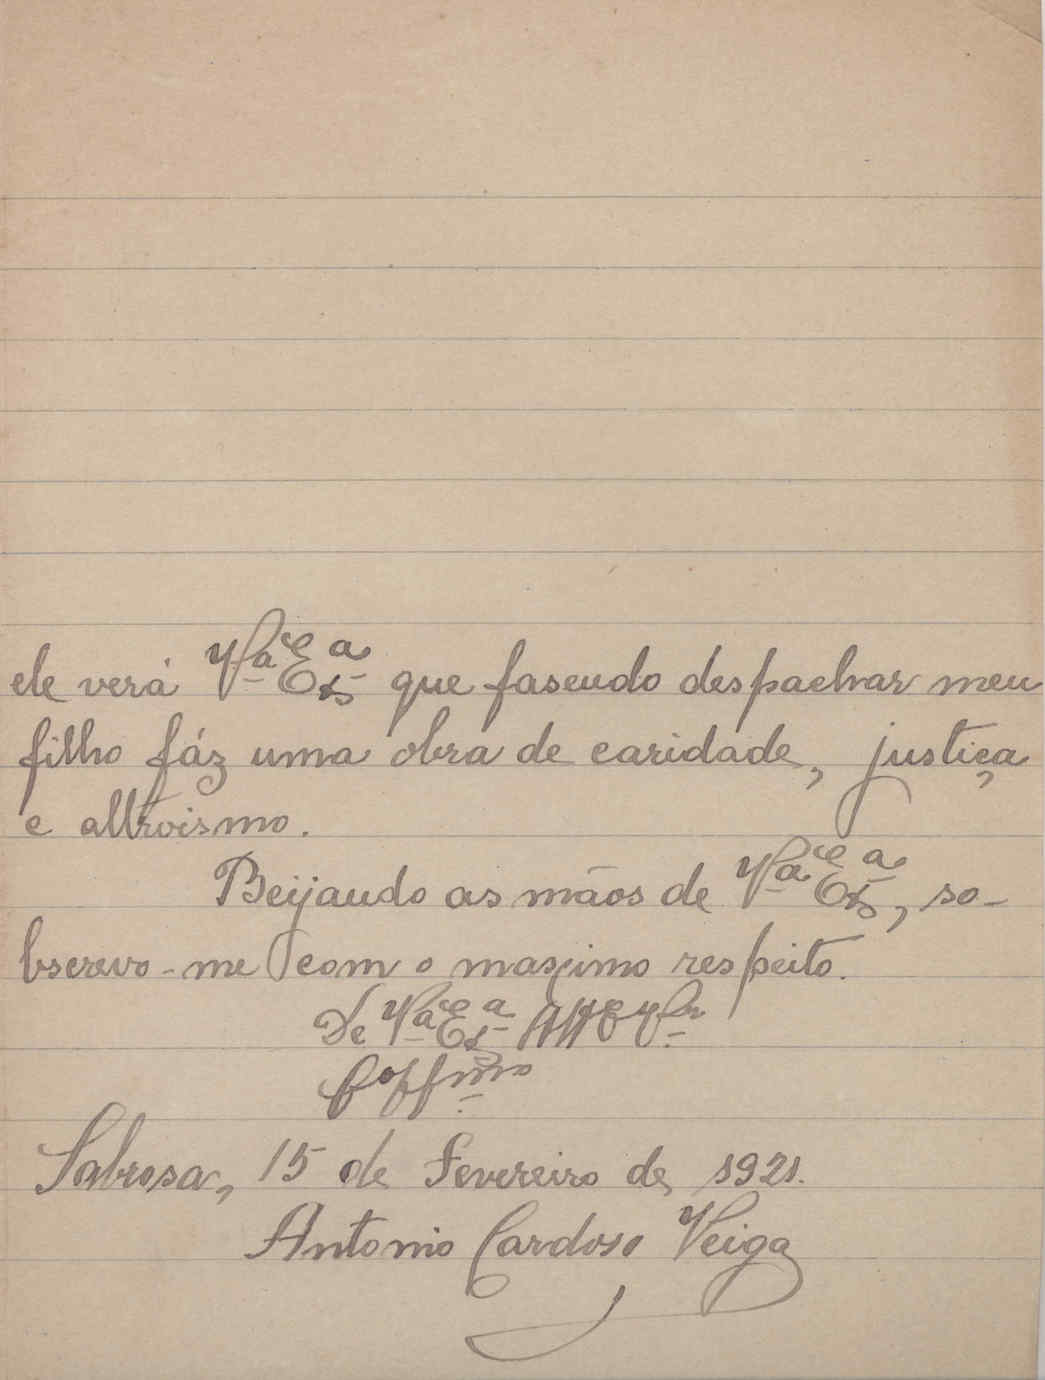 ele verá V.ª Ex.ª que fasendo despachar meu
filho fáz uma obra de caridade, justiça
e altroismo.
Beijando as mãos de V.ª Ex.ª, so-
bscrevo-me com o maximo respeito.
De V.ª Ex.ª
Sabrosa, 15 de Fevereiro de 1921.
Antonio Cardoso Veiga